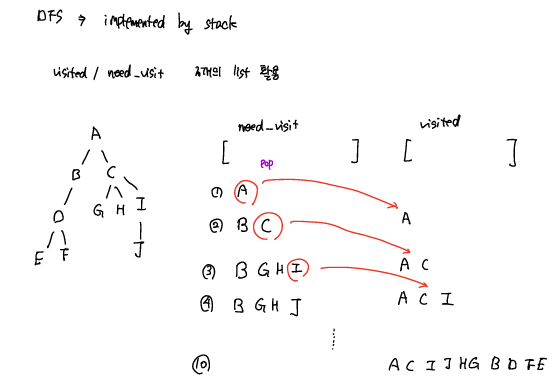 DFS → implemented by stack
visited / need_visit 2개의 list 활용
need_visit visited
[ ] [ ]
pop
A
B C
D G H I
E F J
① A A
② B C A C
③ B G H I A C I
④ B G H J
⑩ A C I J H G B D F E